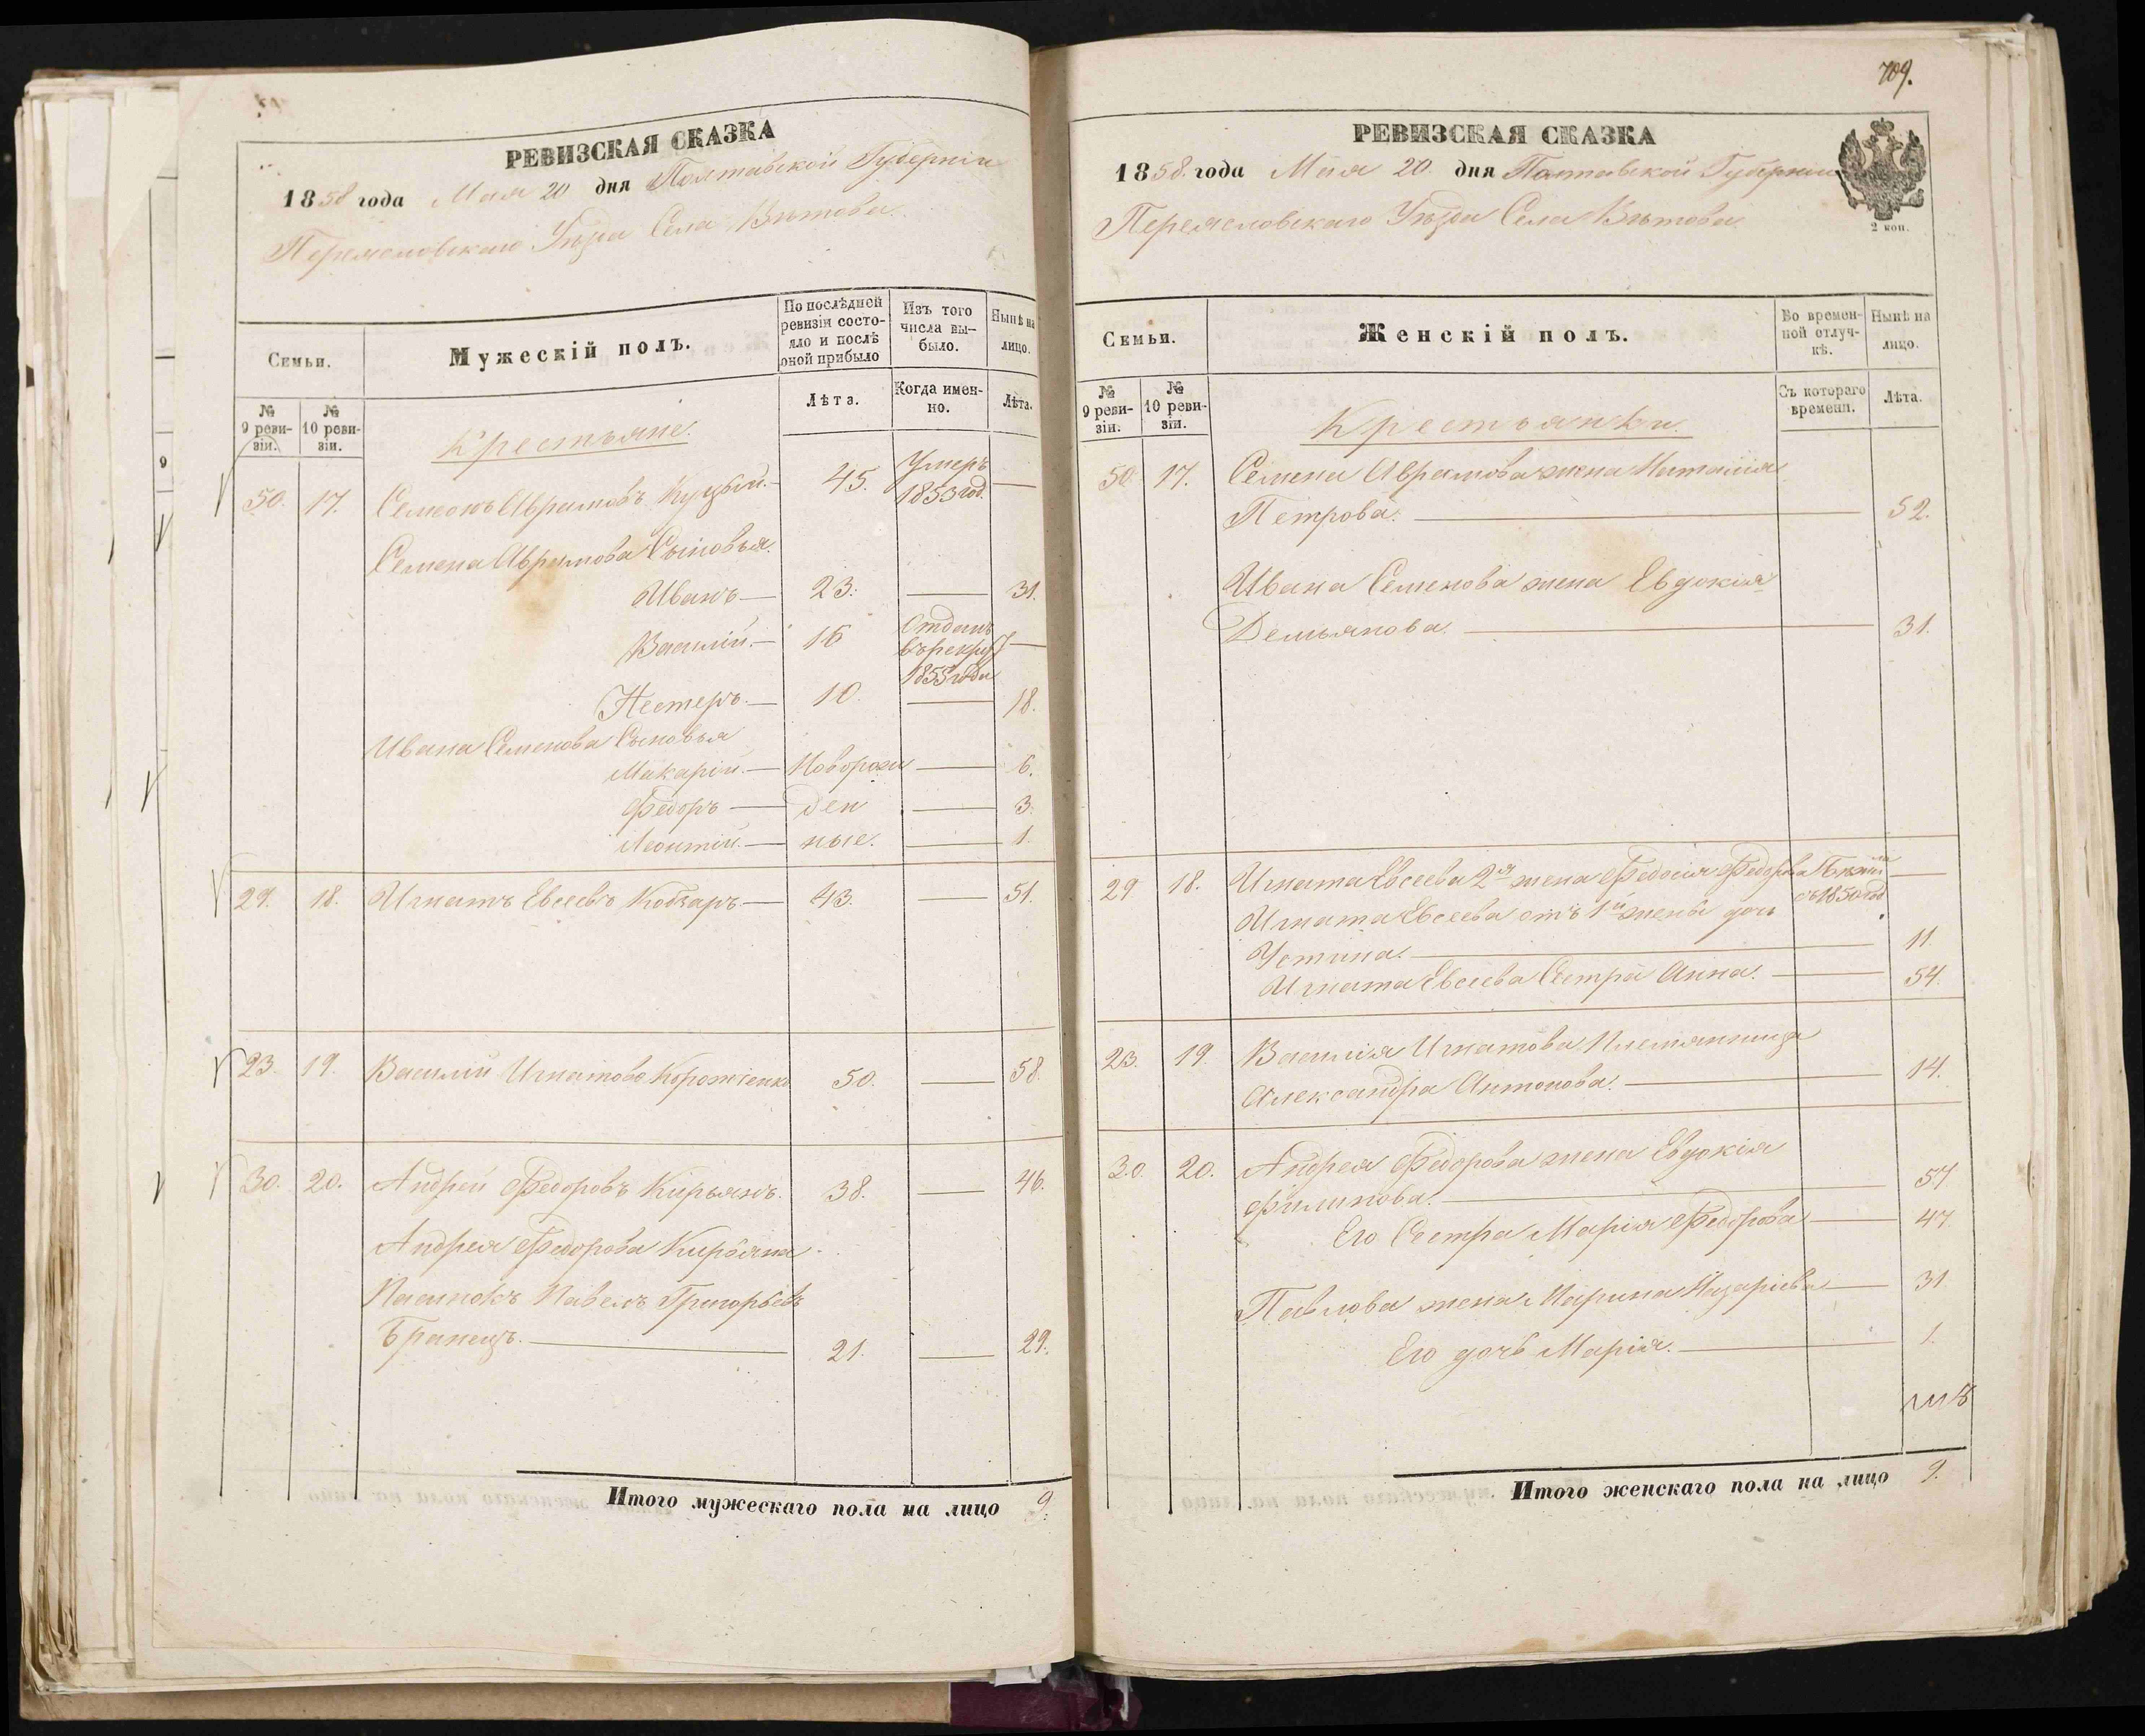 РЕВИЗСКАЯ СКАЗКА
1858 года Мая 20 дня Полтавской Губерніи
Переясловскаго Уѣзда Села Вьтова
Семьи.
Мужескій полъ.
По послѣдней ревизіи состояло и послѣ оной прибыло
Изъ того числа выбыло.
Нынѣ на лицо.
№ 9 ревизіи.
№ 10 ревизіи.
Лѣта.
Когда именно.
Лѣта.
Крестьяне.
50. 17. Семенъ Аврамовъ Куцый. 45. Умеръ 1853 год.
Семена Аврамова Сыновья.
Иванъ 23. 31.
Василій. 16 Отданъ въ рекруты 1855 года
Нестеръ. 10. 18.
Ивана Семенова Сыновья
Макарій. Новорож 6.
Федоръ ден 3.
Леонтій. ные. 1.
29. 18. Игнатъ Евсеевъ Кобзарь. 43. 51.
23. 19. Василій Игнатовъ 50. 58.
30. 20. Андрей Федоровъ Кирьянъ. 38. 46.
Андрея Федорова Кирьяна
Пасынокъ Павелъ Григорьевъ
Бранецъ. 21. 29.
Итого мужескаго пола на лицо 9.
709.
РЕВИЗСКАЯ СКАЗКА
1858. года Мая 20. дня Полтавской Губерніи
Переясловскаго Уѣзда Села Вьтова
2 коп.
Семьи.
Женскій полъ.
Во временной отлучкѣ.
Нынѣ на лицо.
№ 9 ревизіи.
№ 10 ревизіи.
Съ котораго времени.
Лѣта.
Крестьянки.
50. 17. Семена Аврамова жена Наталія
Петрова. 52.
Ивана Семенова жена Евдокія
Демьянова. 31.
29 18. Игната Евсеева 2я жена Федосія Федорова Бежала съ 1850 год
Игната Евсеева отъ 1й жены дочь
Устина. 11.
Игната Евсеева Сестра Анна. 54.
23. 19. Василія Игнатова Племянница
Александра Антонова. 14.
30. 20. Андрея Федорова жена Евдокія
Филипова. 57
Его Сестра Марія Федорова 47.
Павлова жена Марина Назаріева 31
Его дочь Марія. 1.
Итого женскаго пола на лицо 9.